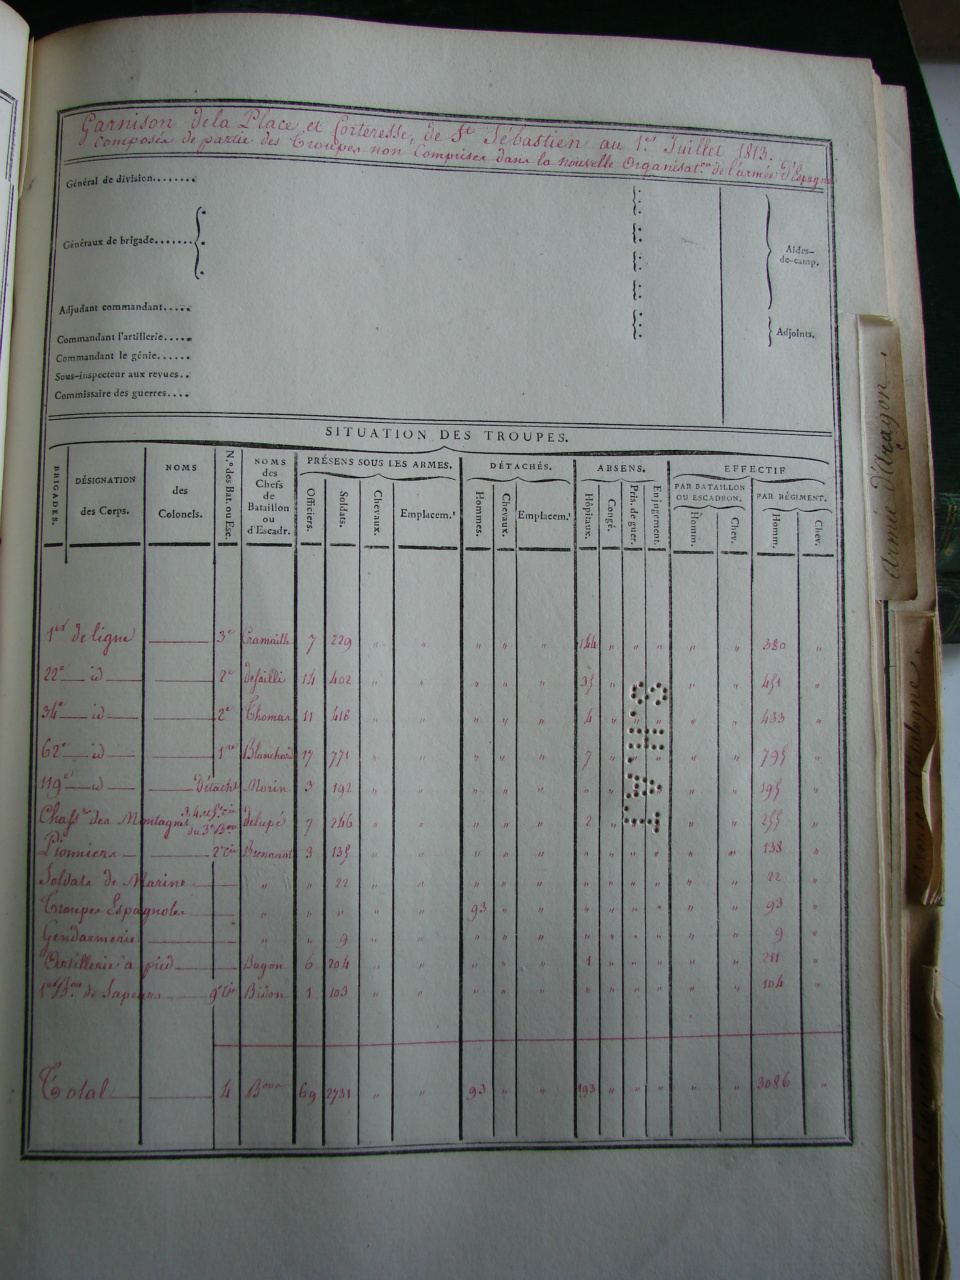 Garnison de la Place et forteresse, de St Sébastien au 1er Juillet 1813.
Composée de partie des Troupes non Comprises dans la nouvelle Organisaton de l'armée d'Espagne
Général de division.......
Généraux de brigade.......
Aides-de-camp.
Adjudant commandant.....
Adjoints.
Commandant l'artillerie.....
Commandant le génie......
Sous-inspecteur aux revues..
Commissaire des guerres....
SITUATION DES TROUPES.
BRIGADES. DÉSIGNATION des Corps. NOMS des Colonels. N.os des Bat. ou Esc. NOMS des Chefs de Bataillon ou d'Escadr. PRÉSENS SOUS LES ARMES. DÉTACHÉS. ABSENS. EFFECTIF
PAR BATAILLON OU ESCADRON. PAR RÉGIMENT.
Officiers. Soldats. Chevaux. Emplacem.t Hommes. Chevaux. Emplacem.t Hôpitaux. Congé. Pris. de guer. Enjugement. Homm. Chev. Homm. Chev.
1er de ligne 3e Cramaille 7 229 " " " " " 144 " " " " " 380 "
22e id 2e 14 402 " " " " " 35 " " " " " 451 "
34e id 2e Thomas 11 418 " " " " " 4 " " " " " 433 "
62e id 1er Blanchard 17 771 " " " " " 7 " " " " " 795 "
119e id Détacht Morin 3 192 " " " " " " " " " " " 195 "
Chasrs des Montagnes 3, 4, et 5e Cie du 3e Bon delupé 7 246 " " " " " 2 " " " " " 255 "
Pionniers 2e Cie 3 135 " " " " " " " " " " " 138 "
Soldats de Marine " " 22 " " " " " " " " " " " 22 "
Troupes Espagnoles " " " " " 93 " " " " " " " " 93 "
Gendarmerie " " 9 " " " " " " " " " " " 9 "
Artillerie à pied Bugon 6 204 " " " " " 1 " " " " " 211 "
1er Bon de Sapeurs 9e Cie Bidon 1 103 " " " " " " " " " " " 104 "
Total 4 Bons 69 2731 " " 93 " " 193 " " " " " 3086 "
S.H.A.T
Armée d'Aragon